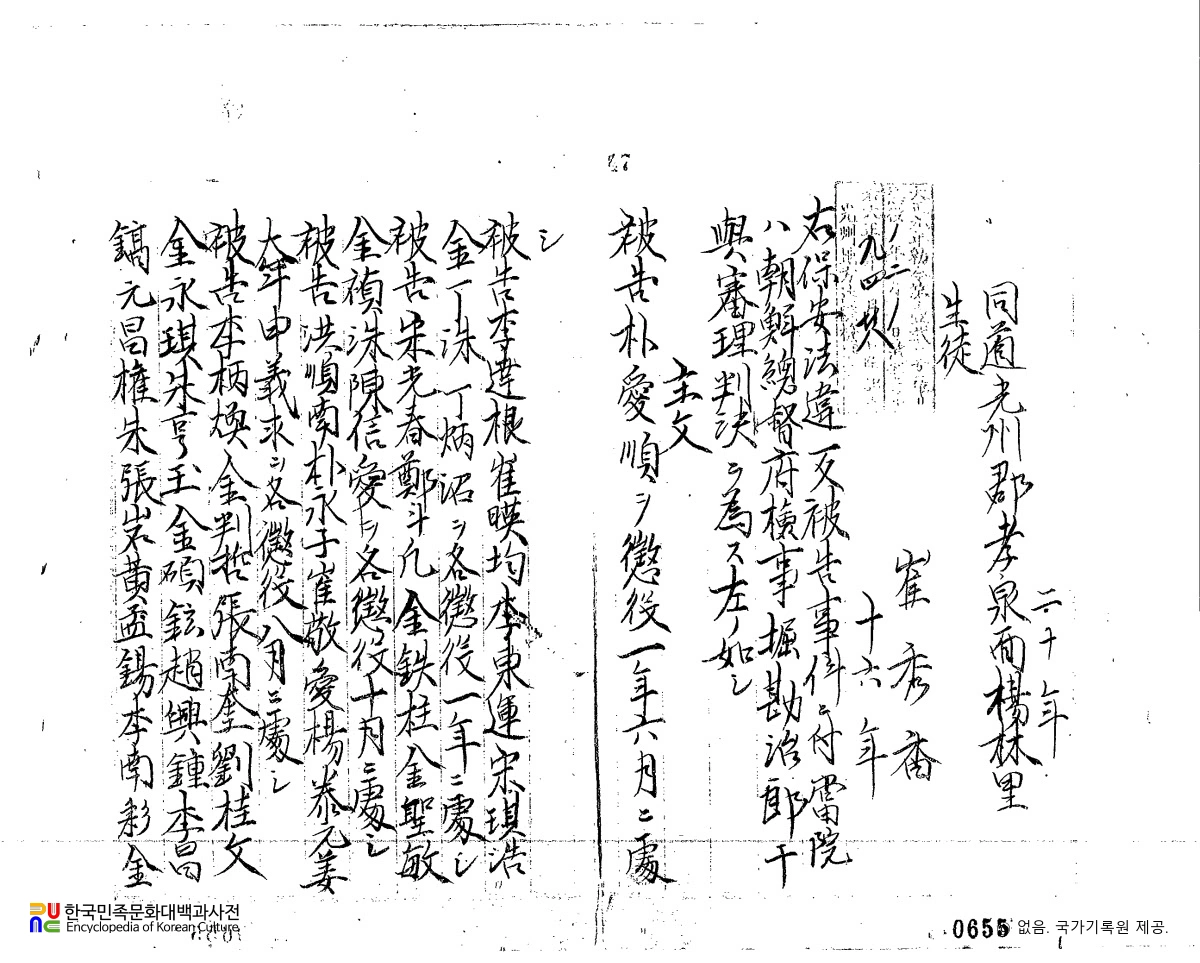 二十年
同道光州郡孝泉面楊林里
生徒
崔秀香
十六年
右保安法違反被告事件ニ付當院
ハ朝鮮總督府檢事堀勘治郎干
與審理判決ヲ為ス左ノ如シ
主文
被告朴愛順ヲ懲役一年六月ニ處
シ
被告李達根崔暎均李東運宋琪浩
金丁洙丁炳沼ヲ各懲役一年ニ處シ
被告朱光春鄭斗凡金鉄柱金聖敏
金禎洙陳信愛ヲ各懲役十月ニ處シ
被告洪順南朴永子崔敬愛楊泰元姜
大年申義求ヲ各懲役八月ニ處シ
被告李柄煥金判哲張南奎劉桂文
金永琪朱亨玉金碩鉉趙興鍾李昌
鎬元昌權朱張岩黃孟錫李南彩金
27
0655
없음. 국가기록원 제공.
한국민족문화대백과사전
Encyclopedia of Korean Culture